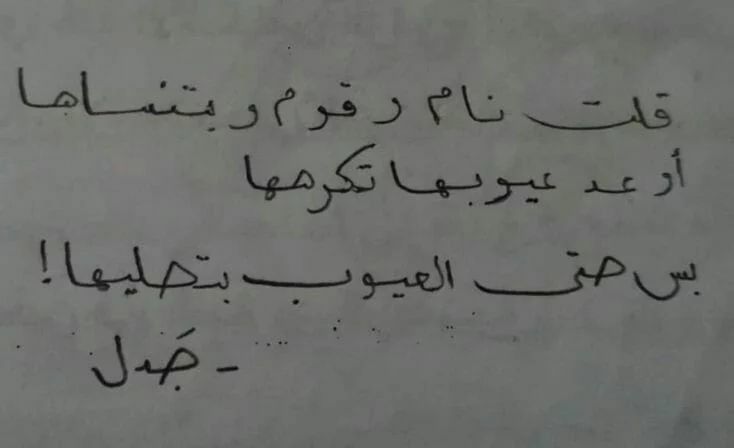 قلت نام وقوم وبتنساها
أو عد عيوبها تكرهها
بس حتى العيوب بتحليها!
- جَدل